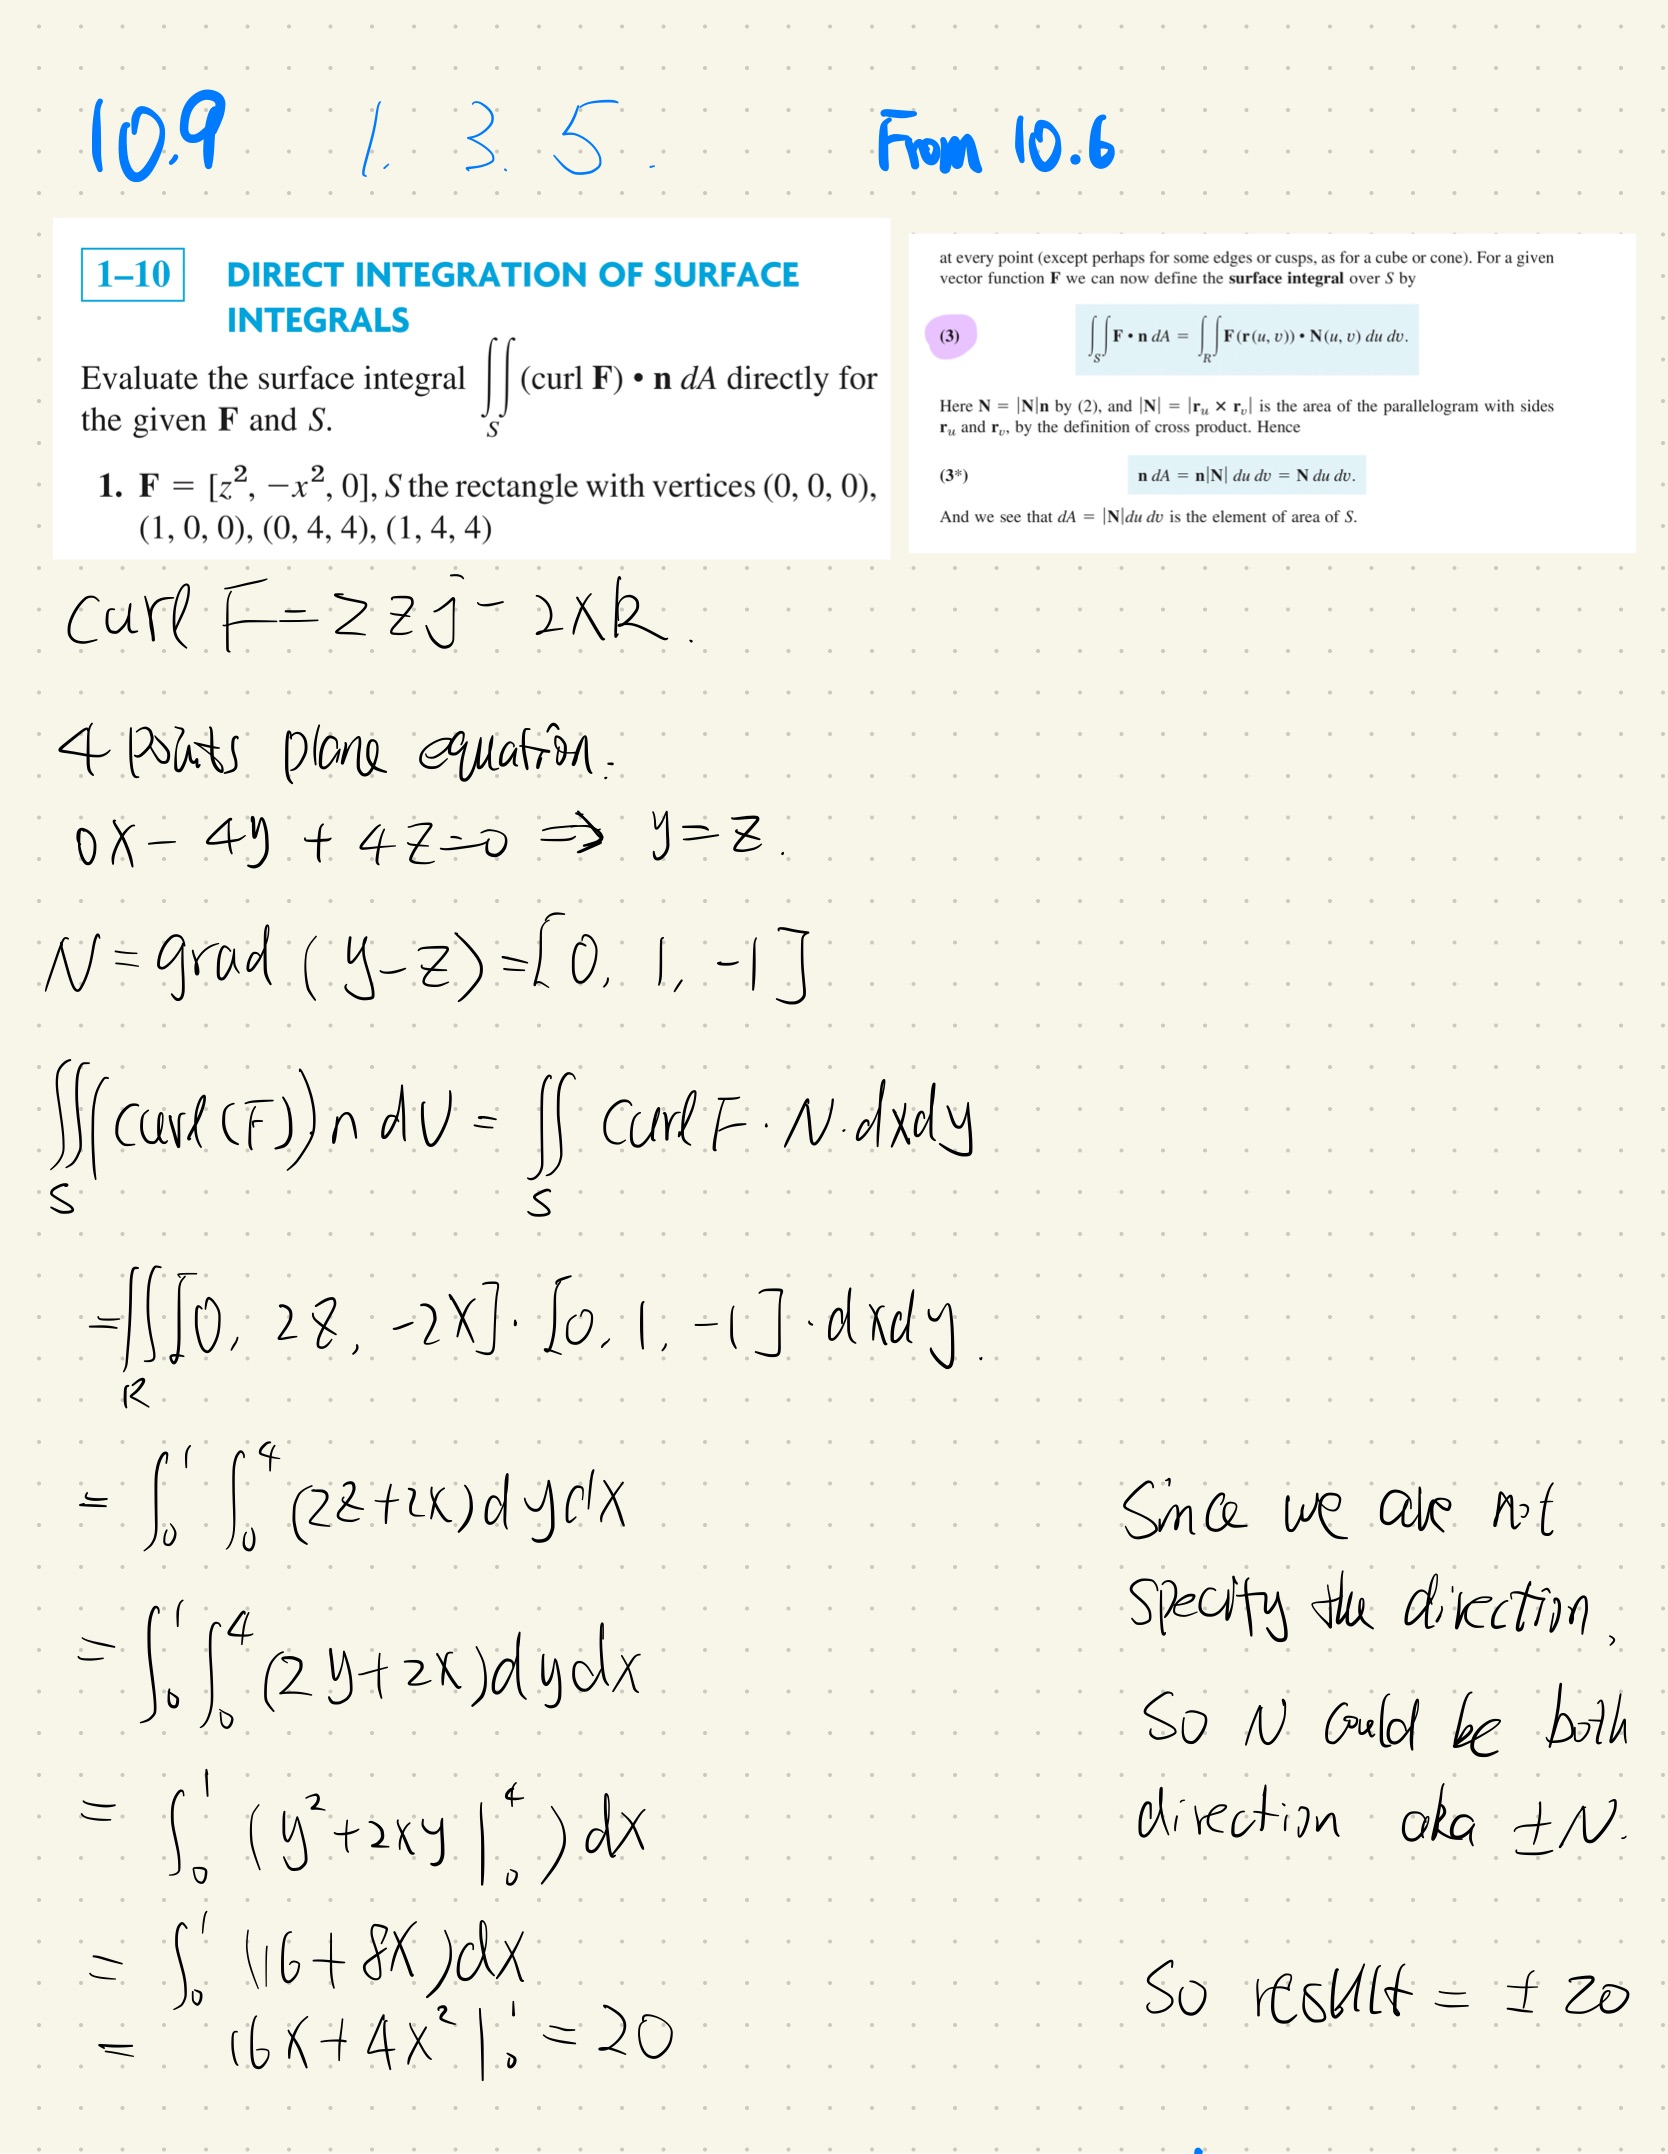 10.9 1. 3. 5. From 10.6
1–10 DIRECT INTEGRATION OF SURFACE
INTEGRALS
Evaluate the surface integral ∬_S (curl F) • n dA directly for
the given F and S.
1. F = [z², −x², 0], S the rectangle with vertices (0, 0, 0),
(1, 0, 0), (0, 4, 4), (1, 4, 4)
at every point (except perhaps for some edges or cusps, as for a cube or cone). For a given
vector function F we can now define the surface integral over S by
(3) ∬_S F • n dA = ∬_R F(r(u, v)) • N(u, v) du dv.
Here N = |N|n by (2), and |N| = |r_u × r_v| is the area of the parallelogram with sides
r_u and r_v, by the definition of cross product. Hence
(3*) n dA = n|N| du dv = N du dv.
And we see that dA = |N|du dv is the element of area of S.
Curl F = 2zj − 2xk.
4 points plane equation.
0x − 4y + 4z = 0 ⇒ y = z.
N = grad (y − z) = [0, 1, −1]
∬_S (curl(F)) n dV = ∬_S Curl F · N · dxdy
= ∬_R [0, 2z, −2x] · [0, 1, −1] · dxdy.
= ∫₀¹ ∫₀⁴ (2z + 2x) dydx
= ∫₀¹ ∫₀⁴ (2y + 2x) dydx
= ∫₀¹ (y² + 2xy |₀⁴) dx
= ∫₀¹ (16 + 8x) dx
= 16x + 4x² |₀¹ = 20
Since we are not
specify the direction,
So N could be both
direction aka ±N.
So result = ± 20